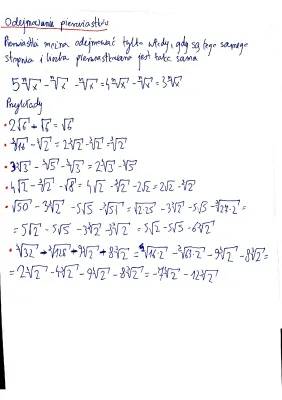 Odejmowanie pierwiastków
Pierwiastki można odejmować tylko wtedy, gdy są tego samego
stopnia i liczba pierwiastkowana jest taka sama
5ⁿ√x - ⁿ√x - ⁿ√x = 4ⁿ√x - ⁿ√x = 3ⁿ√x
Przykłady
• 2√6 - √6 = √6
• ³√16 - ³√2 = 2³√2 - ³√2 = ³√2
• 3³√3 - ³√5 - ³√3 = 2³√3 - ³√5
• 4√2 - ³√2 - √8 = 4√2 - ³√2 - 2√2 = 2√2 - ³√2
• √50 - 3³√2 - 5√5 - ³√54 = √2·25 - 3³√2 - 5√5 - ³√27·2 =
= 5√2 - 5√5 - 3³√2 - 3³√2 = 5√2 - 5√5 - 6³√2